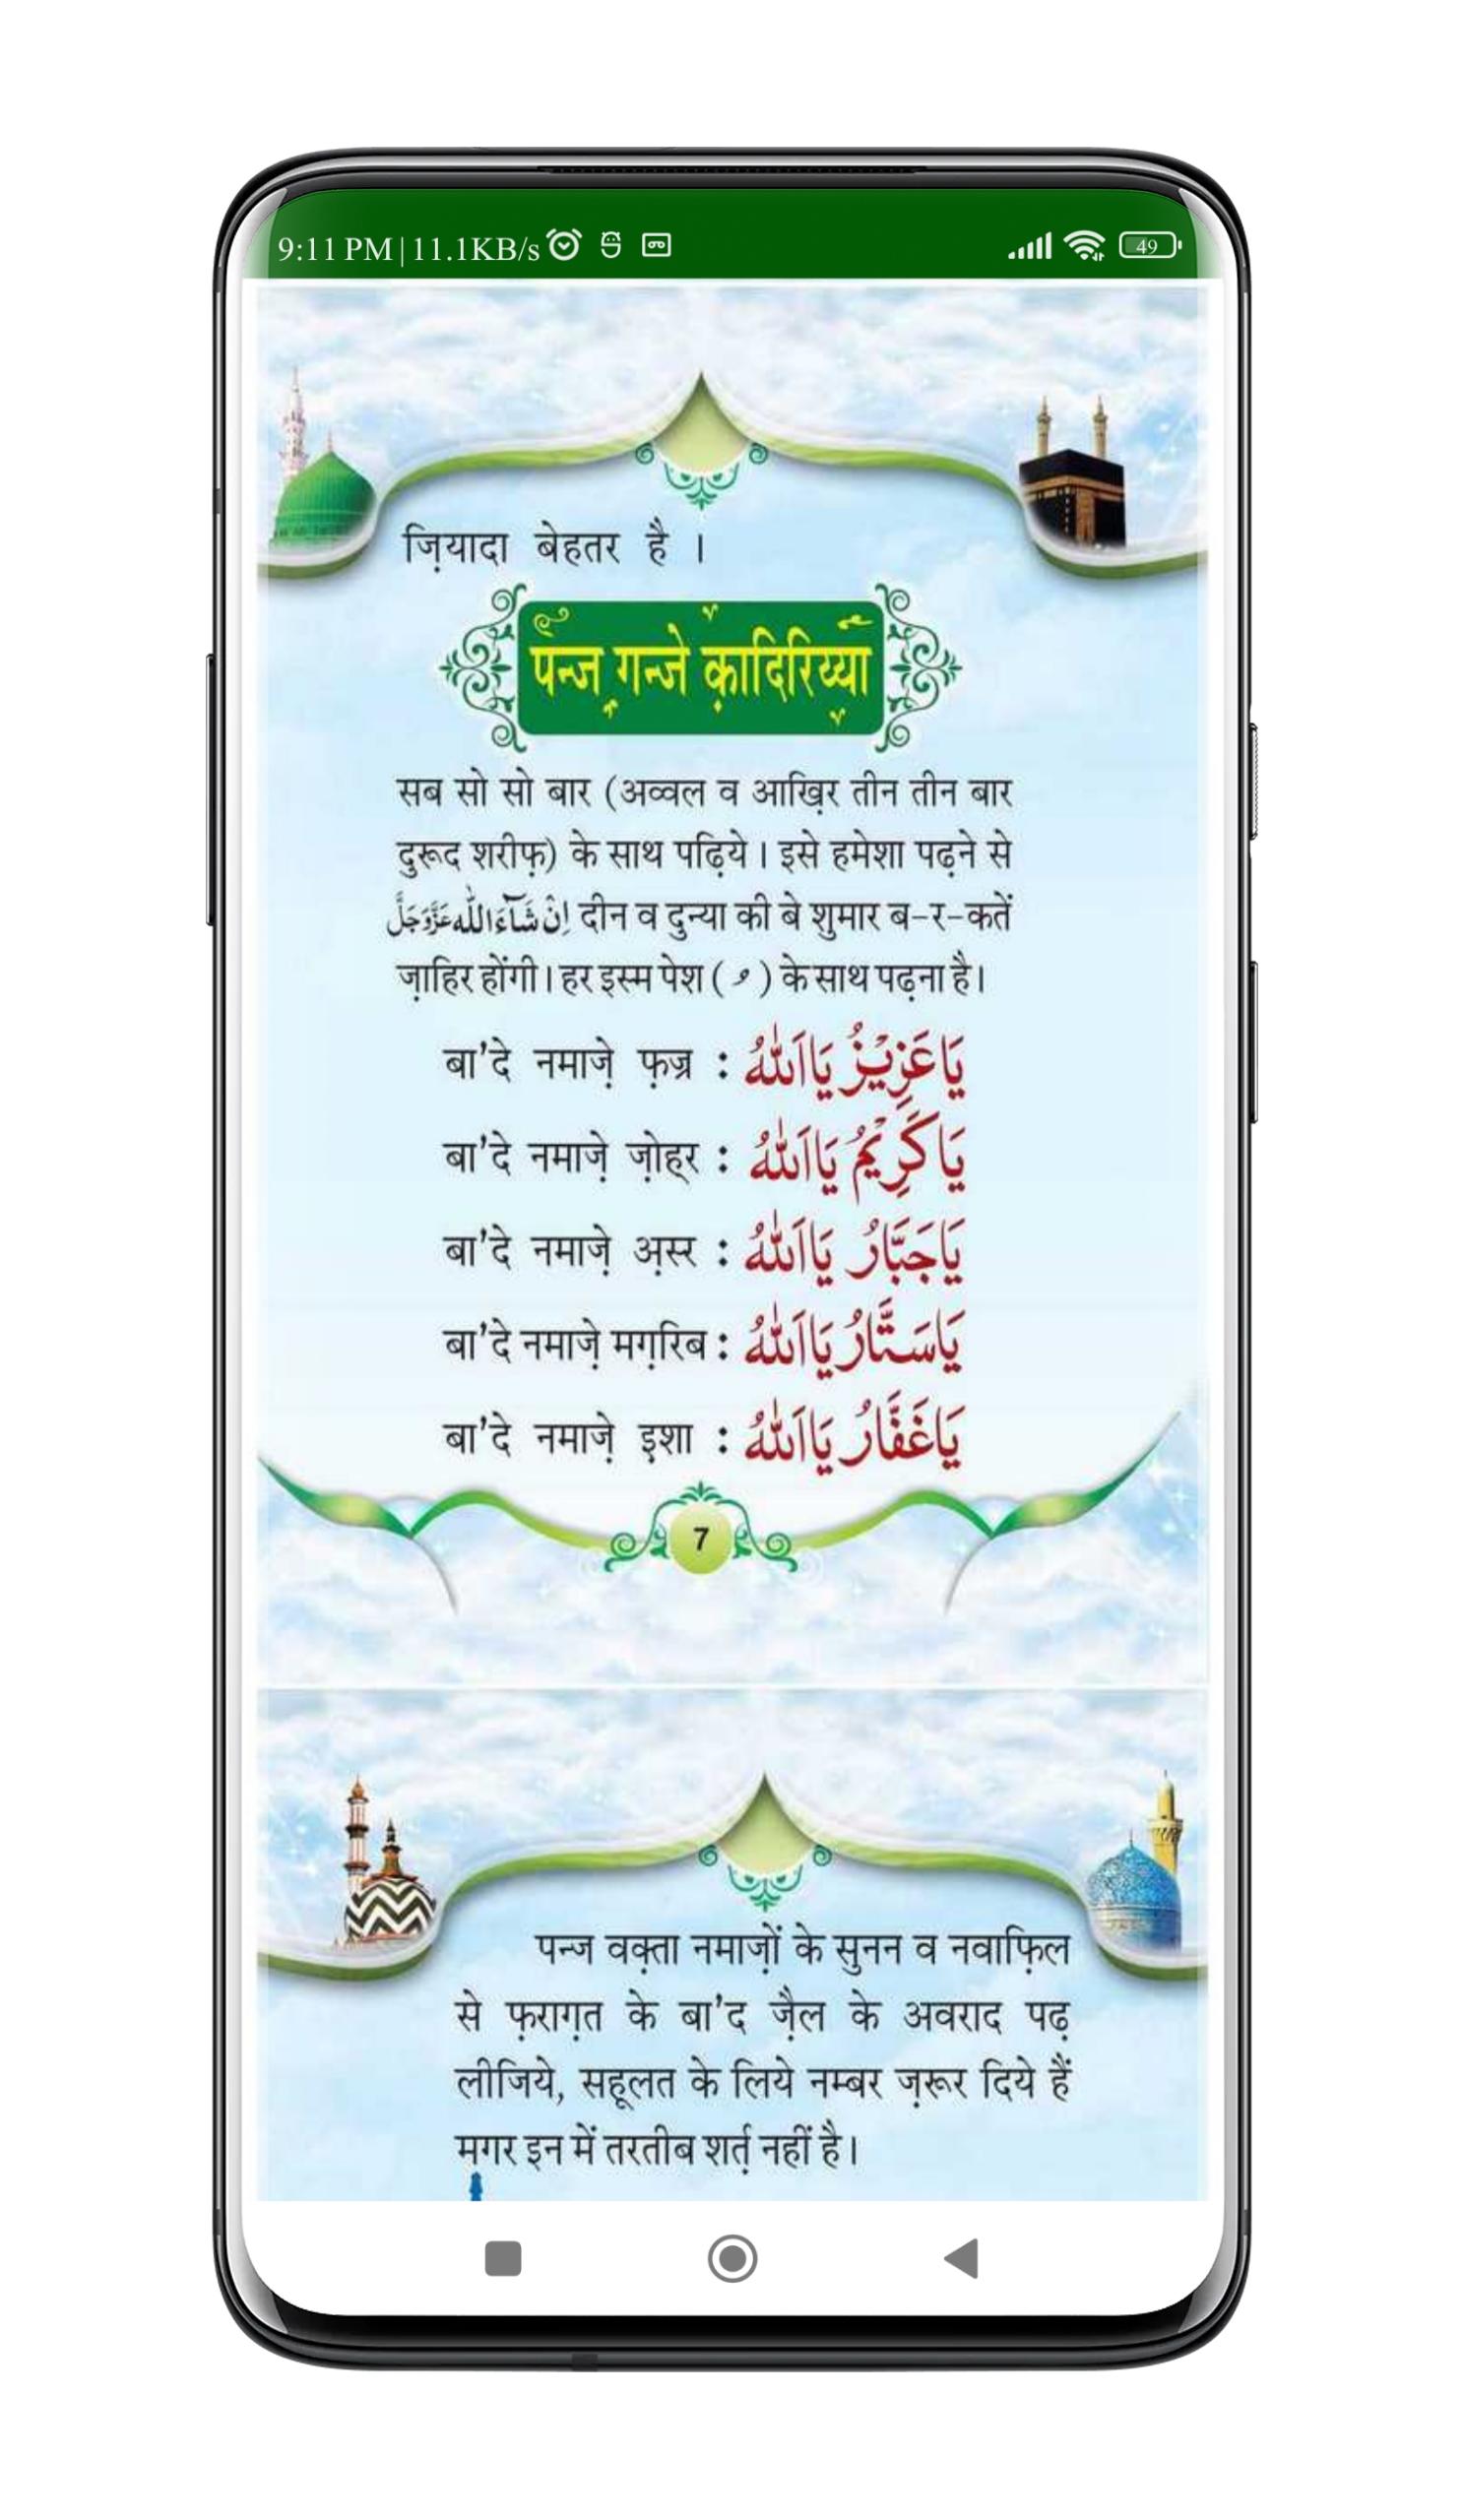 9:11 PM | 11.1KB/s
49
ज़ियादा बेहतर है ।
पन्ज गन्जे क़ादिरिय्या
सब सो सो बार (अव्वल व आख़िर तीन तीन बार
दुरूद शरीफ़) के साथ पढ़िये । इसे हमेशा पढ़ने से
اِنْ شَآءَاللّٰه عَزَّوَجَلَّ दीन व दुन्या की बे शुमार ब-र-कतें
ज़ाहिर होंगी । हर इस्म पेश ( ُ ) के साथ पढ़ना है ।
बा'दे नमाज़े फ़ज्र : يَا عَزِيْزُ يَا اَللّٰهُ
बा'दे नमाज़े ज़ोह्र : يَا كَرِيْمُ يَا اَللّٰهُ
बा'दे नमाज़े अ़स्र : يَا جَبَّارُ يَا اَللّٰهُ
बा'दे नमाज़े मग़रिब : يَا سَتَّارُ يَا اَللّٰهُ
बा'दे नमाज़े इ़शा : يَا غَفَّارُ يَا اَللّٰهُ
7
पन्ज वक़्ता नमाज़ों के सुनन व नवाफ़िल
से फ़राग़त के बा'द ज़ैल के अवराद पढ़
लीजिये, सहूलत के लिये नम्बर ज़रूर दिये हैं
मगर इन में तरतीब शर्त़ नहीं है ।